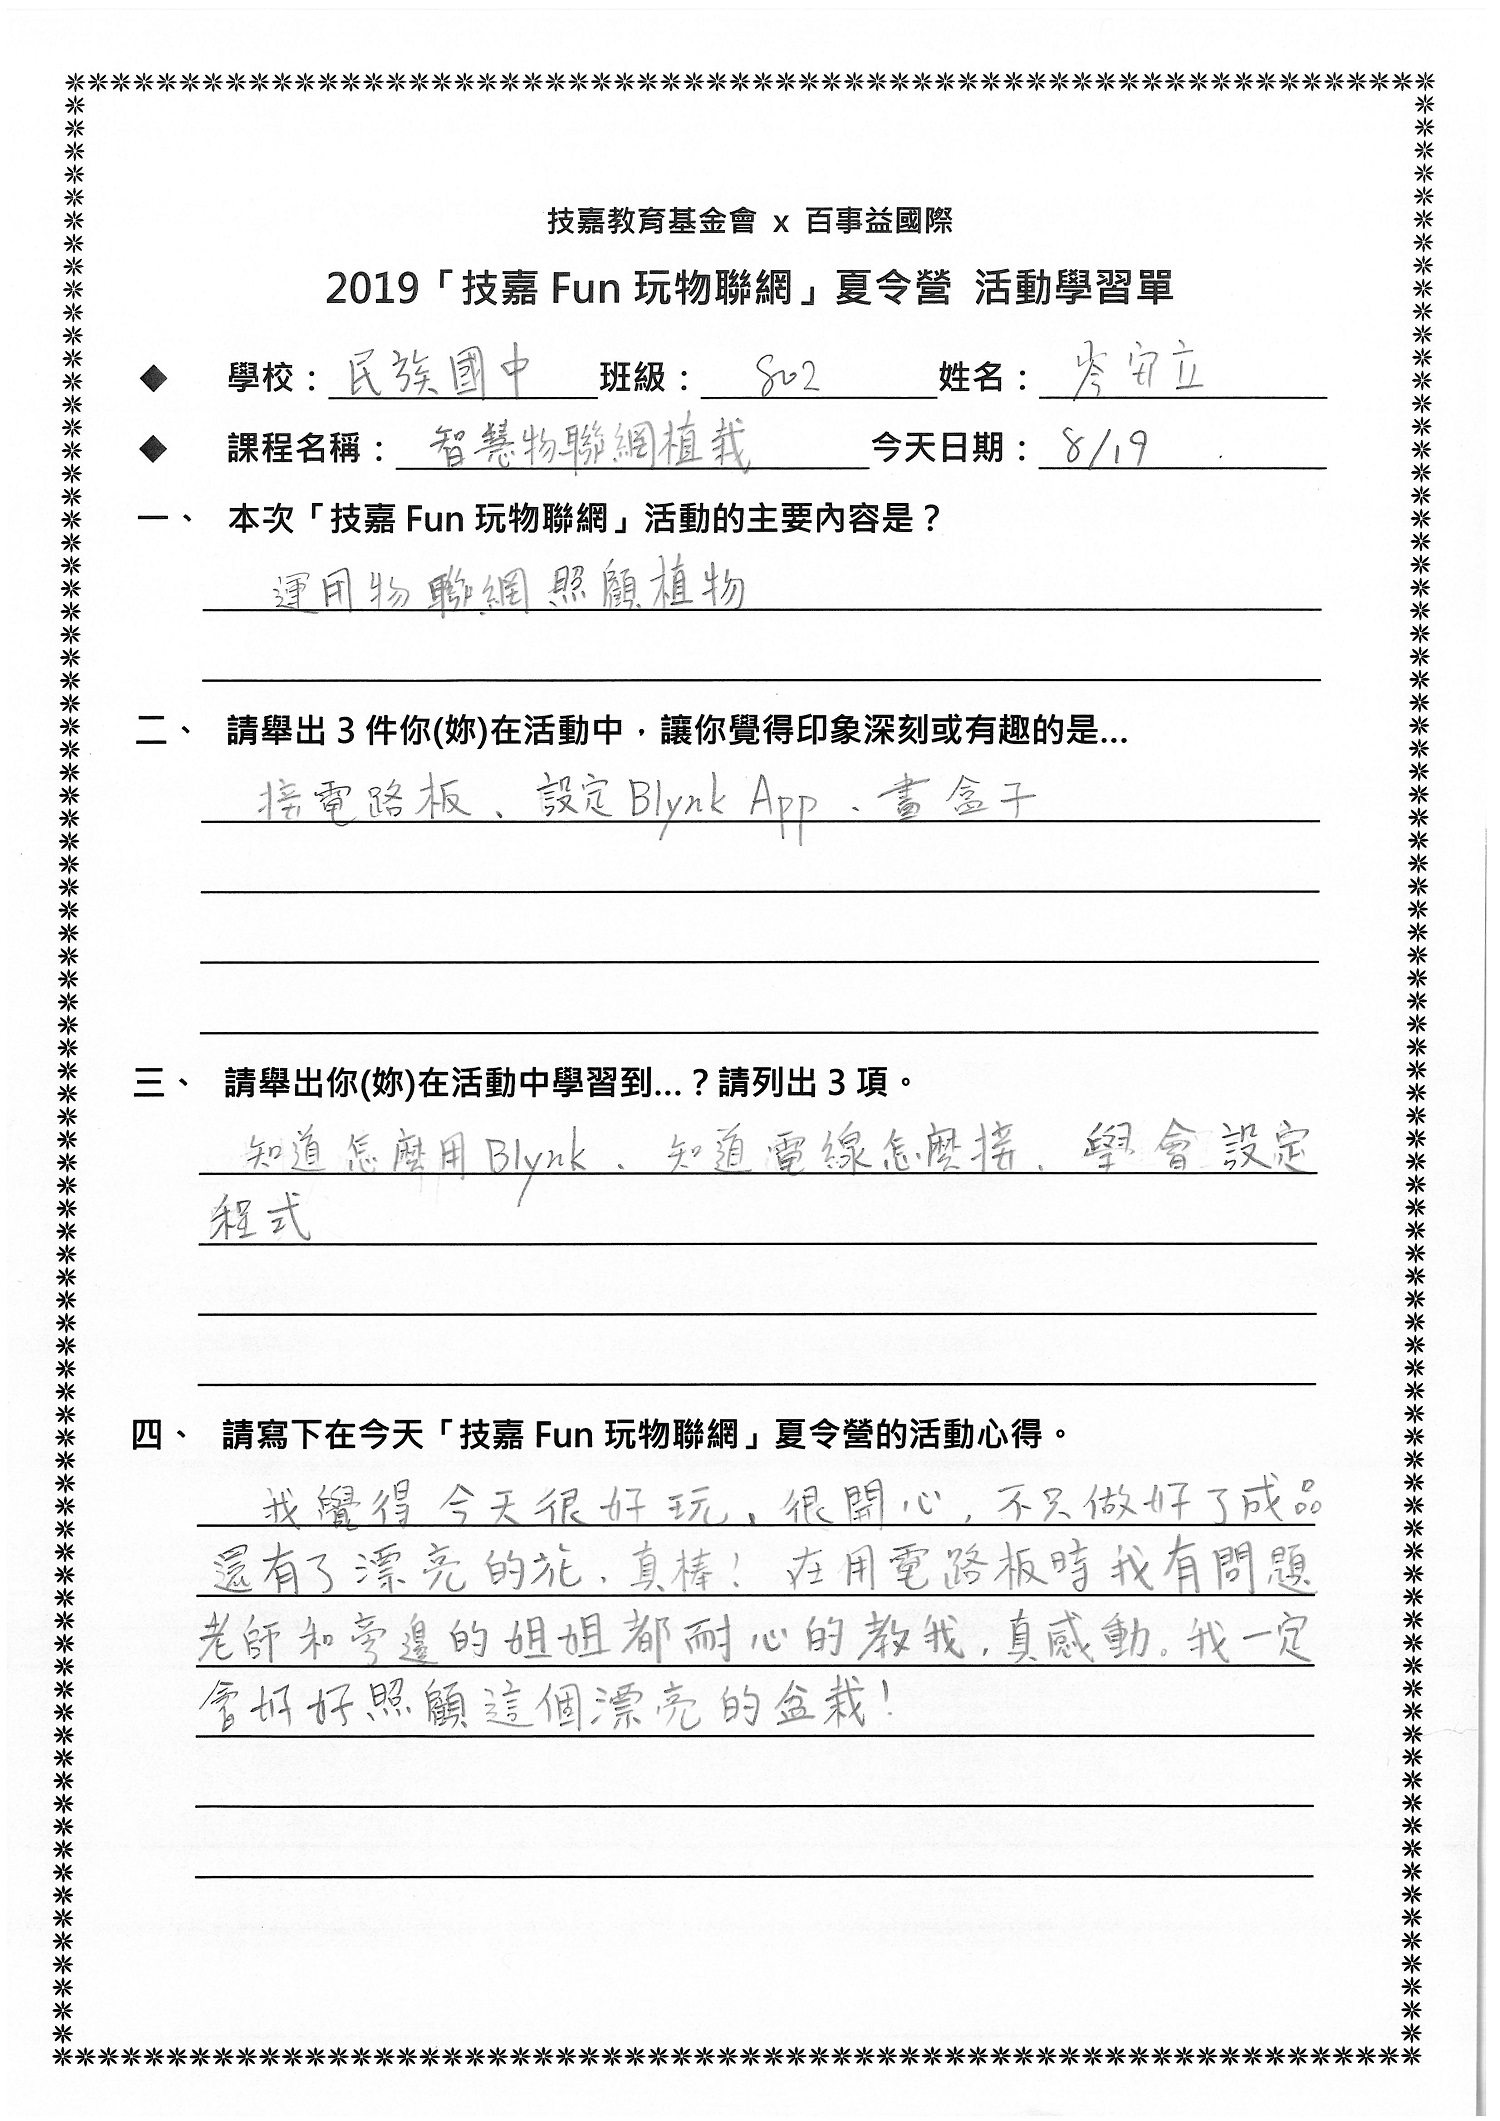 技嘉教育基金會 x 百事益國際
2019「技嘉 Fun 玩物聯網」夏令營 活動學習單
◆ 學校：民族國中 班級：802 姓名：岑守立
◆ 課程名稱：智慧物聯網植栽 今天日期：8/19
一、 本次「技嘉 Fun 玩物聯網」活動的主要內容是？
運用物聯網照顧植物
二、 請舉出 3 件你(妳)在活動中，讓你覺得印象深刻或有趣的是...
接電路板、設定Blynk App、畫盒子
三、 請舉出你(妳)在活動中學習到...？請列出 3 項。
知道怎麼用Blynk、知道電線怎麼接、學會設定
程式
四、 請寫下在今天「技嘉 Fun 玩物聯網」夏令營的活動心得。
我覺得今天很好玩，很開心，不只做好了成品
還有了漂亮的花，真棒！在用電路板時我有問題
老師和旁邊的姐姐都耐心的教我，真感動。我一定
會好好照顧這個漂亮的盆栽！